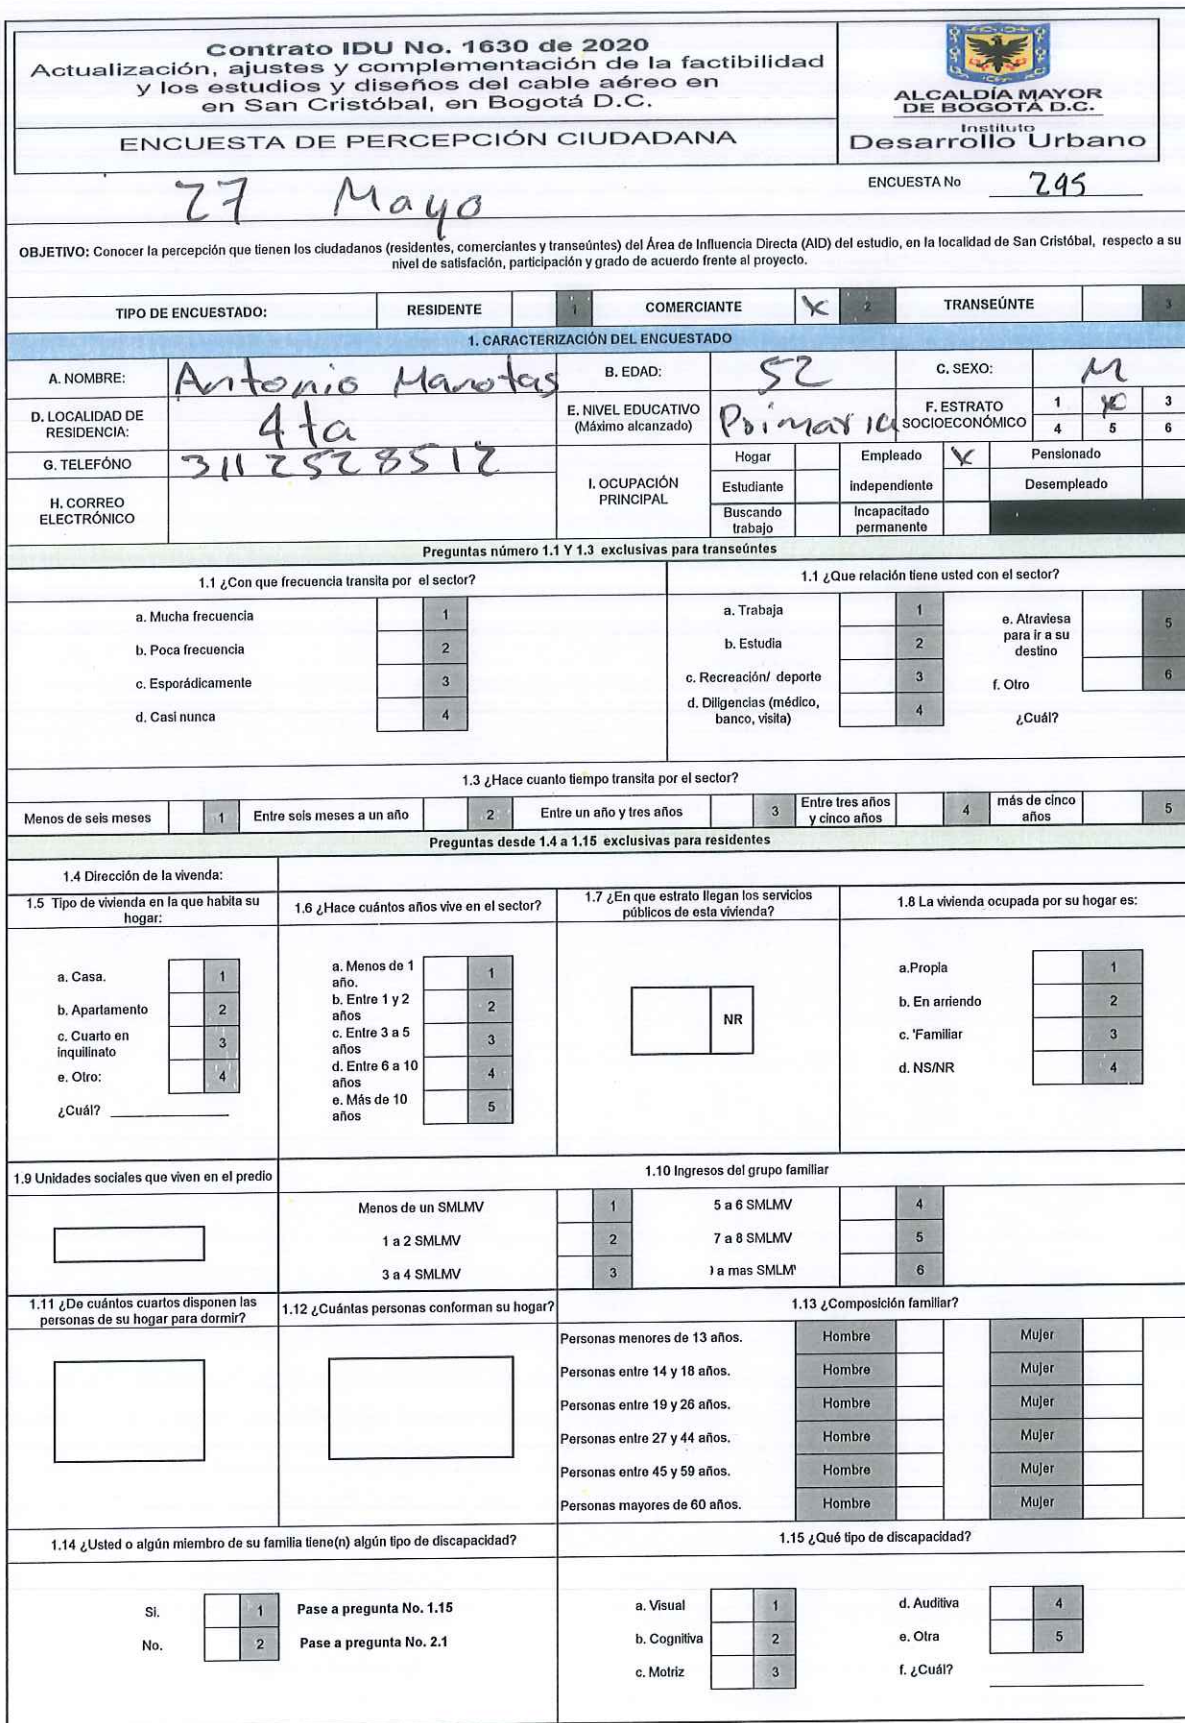 Contrato IDU No. 1630 de 2020
Actualización, ajustes y complementación de la factibilidad
y los estudios y diseños del cable aéreo en
en San Cristóbal, en Bogotá D.C.
ENCUESTA DE PERCEPCIÓN CIUDADANA
ALCALDÍA MAYOR
DE BOGOTÁ D.C.
Instituto
Desarrollo Urbano
27 Mayo
ENCUESTA No 295
OBJETIVO: Conocer la percepción que tienen los ciudadanos (residentes, comerciantes y transeúntes) del Área de Influencia Directa (AID) del estudio, en la localidad de San Cristóbal, respecto a su
nivel de satisfacción, participación y grado de acuerdo frente al proyecto.
TIPO DE ENCUESTADO: RESIDENTE 1 COMERCIANTE X 2 TRANSEÚNTE 3
1. CARACTERIZACIÓN DEL ENCUESTADO
A. NOMBRE: Antonio Manotas B. EDAD: 52 C. SEXO: M
D. LOCALIDAD DE
RESIDENCIA: 4ta
E. NIVEL EDUCATIVO
(Máximo alcanzado) Primaria
F. ESTRATO
SOCIOECONÓMICO
1 X 3
4 5 6
G. TELEFÓNO 3112528512
H. CORREO
ELECTRÓNICO
I. OCUPACIÓN
PRINCIPAL
Hogar Empleado X Pensionado
Estudiante independiente Desempleado
Buscando
trabajo
Incapacitado
permanente
Preguntas número 1.1 Y 1.3 exclusivas para transeúntes
1.1 ¿Con que frecuencia transita por el sector?
a. Mucha frecuencia 1
b. Poca frecuencia 2
c. Esporádicamente 3
d. Casi nunca 4
1.1 ¿Que relación tiene usted con el sector?
a. Trabaja 1
b. Estudia 2
c. Recreación/ deporte 3
d. Diligencias (médico,
banco, visita) 4
e. Atraviesa
para ir a su
destino 5
f. Otro 6
¿Cuál?
1.3 ¿Hace cuanto tiempo transita por el sector?
Menos de seis meses 1 Entre seis meses a un año 2 Entre un año y tres años 3 Entre tres años
y cinco años 4 más de cinco
años 5
Preguntas desde 1.4 a 1.15 exclusivas para residentes
1.4 Dirección de la vivenda:
1.5 Tipo de vivienda en la que habita su
hogar:
a. Casa. 1
b. Apartamento 2
c. Cuarto en
inquilinato 3
e. Otro: 4
¿Cuál?
1.6 ¿Hace cuántos años vive en el sector?
a. Menos de 1
año. 1
b. Entre 1 y 2
años 2
c. Entre 3 a 5
años 3
d. Entre 6 a 10
años 4
e. Más de 10
años 5
1.7 ¿En que estrato llegan los servicios
públicos de esta vivienda?
NR
1.8 La vivienda ocupada por su hogar es:
a.Propia 1
b. En arriendo 2
c. 'Familiar 3
d. NS/NR 4
1.9 Unidades sociales que viven en el predio
1.10 Ingresos del grupo familiar
Menos de un SMLMV 1 5 a 6 SMLMV 4
1 a 2 SMLMV 2 7 a 8 SMLMV 5
3 a 4 SMLMV 3 a mas SMLM 6
1.11 ¿De cuántos cuartos disponen las
personas de su hogar para dormir?
1.12 ¿Cuántas personas conforman su hogar?
1.13 ¿Composición familiar?
Personas menores de 13 años. Hombre Mujer
Personas entre 14 y 18 años. Hombre Mujer
Personas entre 19 y 26 años. Hombre Mujer
Personas entre 27 y 44 años. Hombre Mujer
Personas entre 45 y 59 años. Hombre Mujer
Personas mayores de 60 años. Hombre Mujer
1.14 ¿Usted o algún miembro de su familia tiene(n) algún tipo de discapacidad?
Si. 1 Pase a pregunta No. 1.15
No. 2 Pase a pregunta No. 2.1
1.15 ¿Qué tipo de discapacidad?
a. Visual 1 d. Auditiva 4
b. Cognitiva 2 e. Otra 5
c. Motriz 3 f. ¿Cuál?